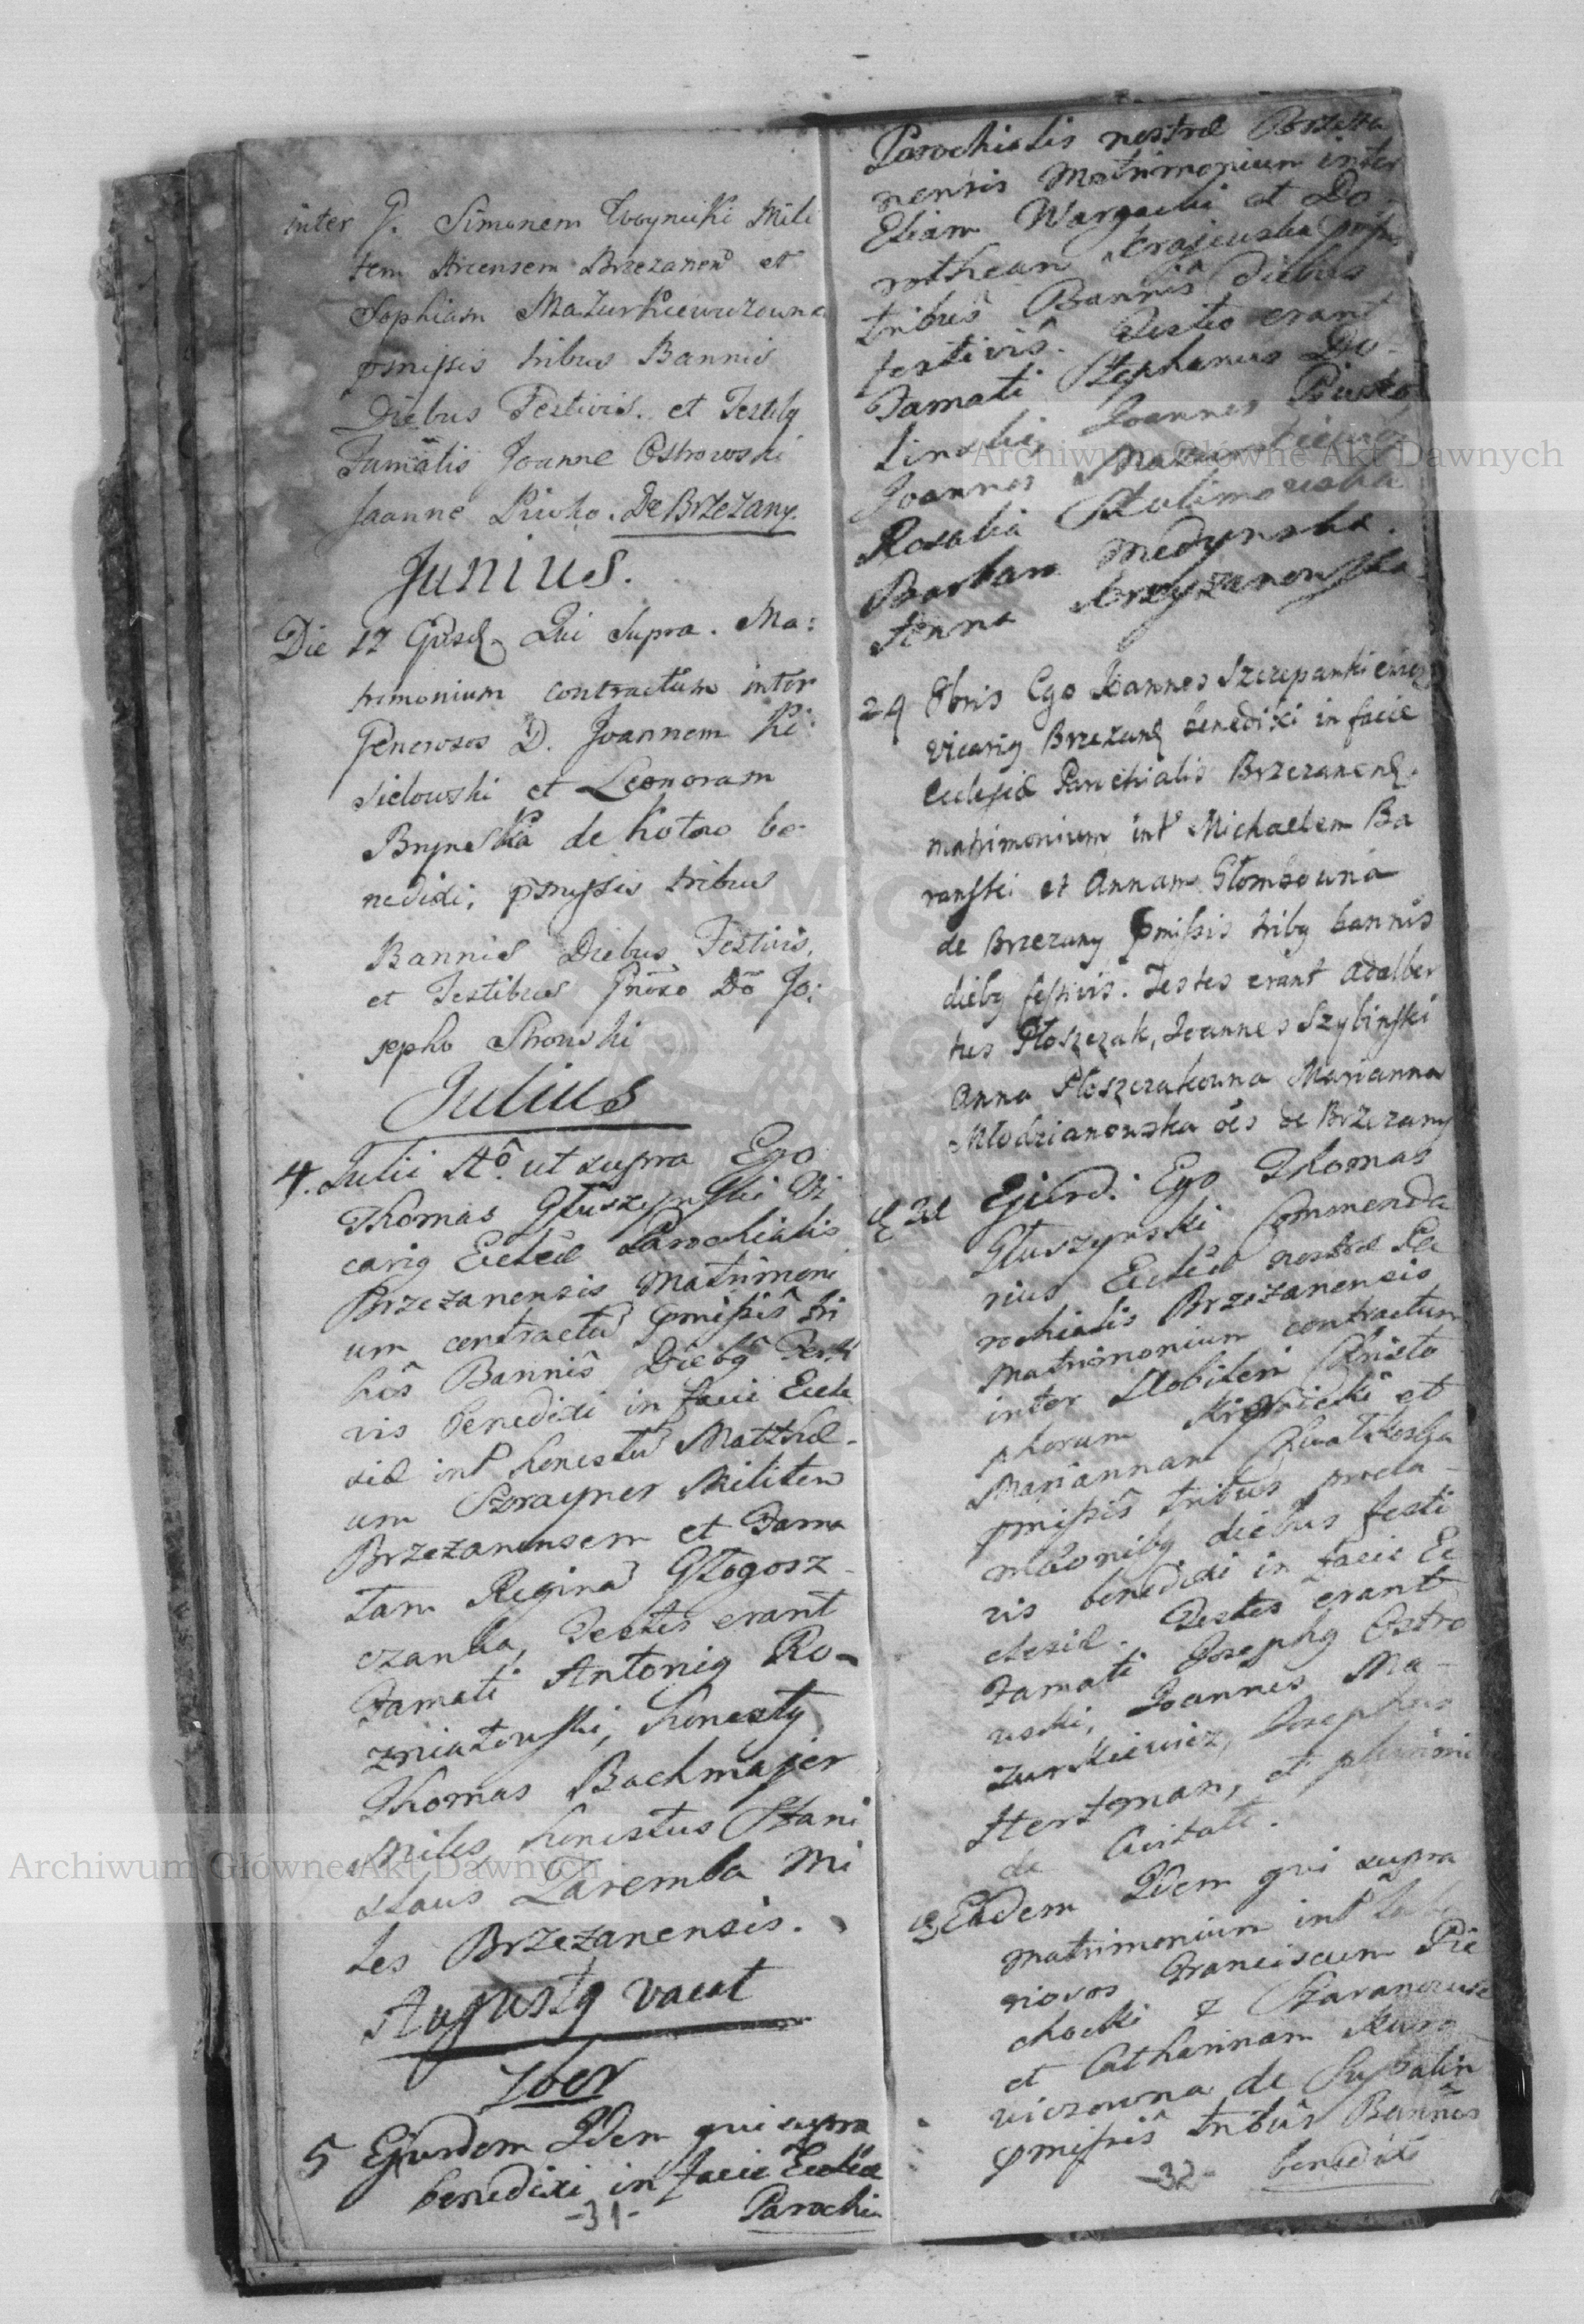 inter G. Simonem Woynicki Mili
tem Arcensem Brzezanen et
Sophiam Mazurkiewiczowna
pmissis tribus Bannis
Diebus Festivis. et Testibq
Famatis Joanne Ostrowski
Joanne Piwko. De Brzezany.
Junius.
Die 17 Qui Supra. Ma:
trimonium contractum inter
Generosos D. Joannem Ki:
sielowski et Leonoram
Brynska de Kotow be-
nedixi, pmissis tribus
Bannis Diebus Festivis,
et Testibus Gnoso Do Jo:
sepho
Julius
4. Julii Ao. ut supra Ego
Thomas Głuszynski Vi
cariq Eccleae Parochialis
Brzezanensis Matrimoni
um contractu pmissis tri
bus Bannis Diebq Festi
vis benedixi in facie Eccle
siae int honestu Matthae-
um Szrayner Militem
Brzezanensem et Fama
tam Regina Głogosz-
czanka, Testes erant
Famati Antoniq Ro-
zniatowski, honestq
Thomas Bachmajer
Miles honestus Stani
slaus Zaremba Mi
les Brzezanensis.
Augustq vacat
7ber
5 Ejusdem Idem qui supra
benedixi in facie Eccleae
-31-
Parochia
Parochialis nostrae Brzeza
nensis Matrimonium inter
Eliam Wargacki et Do-
rotheam Krajewska pmis
tribus Bannis Diebus
festivis. Testes erant
Famati Stephanus Do-
linski, Joannes Piwko
Joannes Mazurkiewicz
Rosalia Stulimowska
Barbara Medynska.
Anna Krzyzanowska.
24 8bris Ego Joannes Szczepankiewicz
vicariq Brzezan benedixi in facie
Eclesiae Parochialis Brzezanen.
matrimonium int Michaelem Ba
ranski et Annam Głombowna
de Brzezany pmissis tribq bannis
diebq festivis. Testes erant Adalber
tus Płoszczak, Joannes Szybinski
Anna Płoszczakowna Marianna
Młodzianowska oes de Brzezany
Ejusd: Ego Thomas
Głuszynski Commenda
rius Eccleae nostrae Pa
rochialis Brzezanensis
Matrimonium contractum
inter Nobilem Christo
phorum et
Mariannam Kwatkoska
pmissis tribus procla-
maonibq diebus festi
vis benedixi in facie Ec
clesiae. Testes erant
Famati Josephq Ostro
wski, Joannes Ma-
zurkiewicz, Josephus
Hertman, et plurimi
de Civitate.
Eadem Idem qui supra
Matrimonium int Labo
riosos Franciscum Pie
chocki z
et Catharinam
wiczowna de
pmissis tribus Bannis
-32-
benedixi
Archiwum Główne Akt Dawnych
Archiwum Główne Akt Dawnych